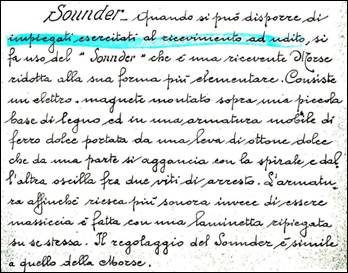 Sounder – Quando si può disporre di
impiegati esercitati al ricevimento ad udito, si
fa uso del "Sounder" che è una ricevente Morse
ridotta alla sua forma più elementare. Consiste
un elettro-magnete montato sopra una piccola
base di legno ed in una armatura mobile di
ferro dolce portata da una leva di ottone dolce
che da una parte si aggancia con la spirale e dal
l'altra oscilla fra due viti di arresto. L'armatu-
ra affinchè riesca più sonora invece di essere
massiccia è fatta con una laminetta ripiegata
su se stessa. Il regolaggio del Sounder è simile
a quello della Morse.